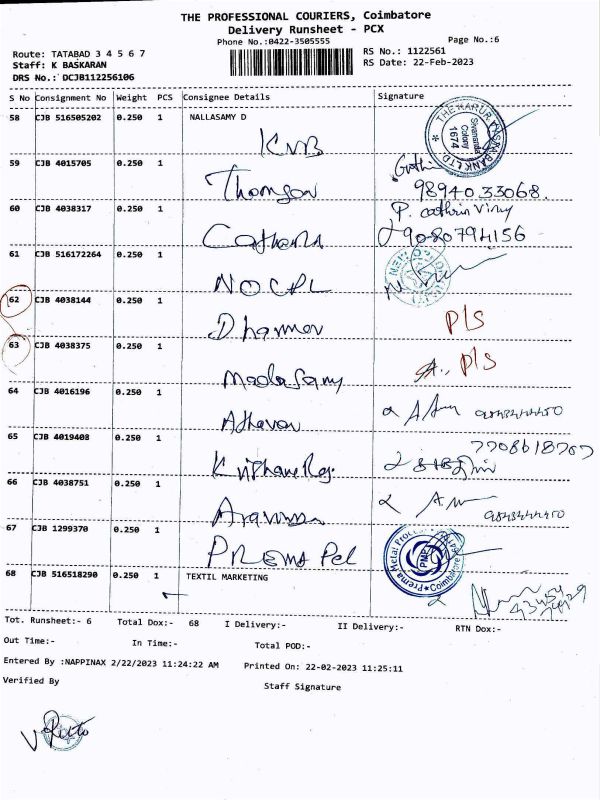 THE PROFESSIONAL COURIERS, Coimbatore
Delivery Runsheet - PCX
Phone No.:0422-3505555
Page No.:6
Route: TATABAD 3 4 5 6 7
Staff: K BASKARAN
DRS No.: DCJB112256106
RS No.: 1122561
RS Date: 22-Feb-2023
S No Consignment No Weight PCS Consignee Details Signature
58 CJB 516505202 0.250 1 NALLASAMY D
KVB
THE KARUR VYSYA BANK LTD.
Sivananda Colony
1674
59 CJB 4015705 0.250 1
Thomson
98940 33068.
60 CJB 4038317 0.250 1
P. cathrin Viny
9080794156
61 CJB 516172264 0.250 1
NOCPL
62 CJB 4038144 0.250 1
Dhamon
P/S
63 CJB 4038375 0.250 1
Madasamy
P/S
64 CJB 4016196 0.250 1
Athavan
65 CJB 4019408 0.250 1
7708618707
66 CJB 4038751 0.250 1
67 CJB 1299370 0.250 1
PREMA Pel
Prema Metal Process
PMP
Coimbatore
68 CJB 516518290 0.250 1 TEXTIL MARKETING
Tot. Runsheet:- 6 Total Dox:- 68 I Delivery:- II Delivery:- RTN Dox:-
Out Time:- In Time:- Total POD:-
Entered By :NAPPINAX 2/22/2023 11:24:22 AM Printed On: 22-02-2023 11:25:11
Verified By Staff Signature